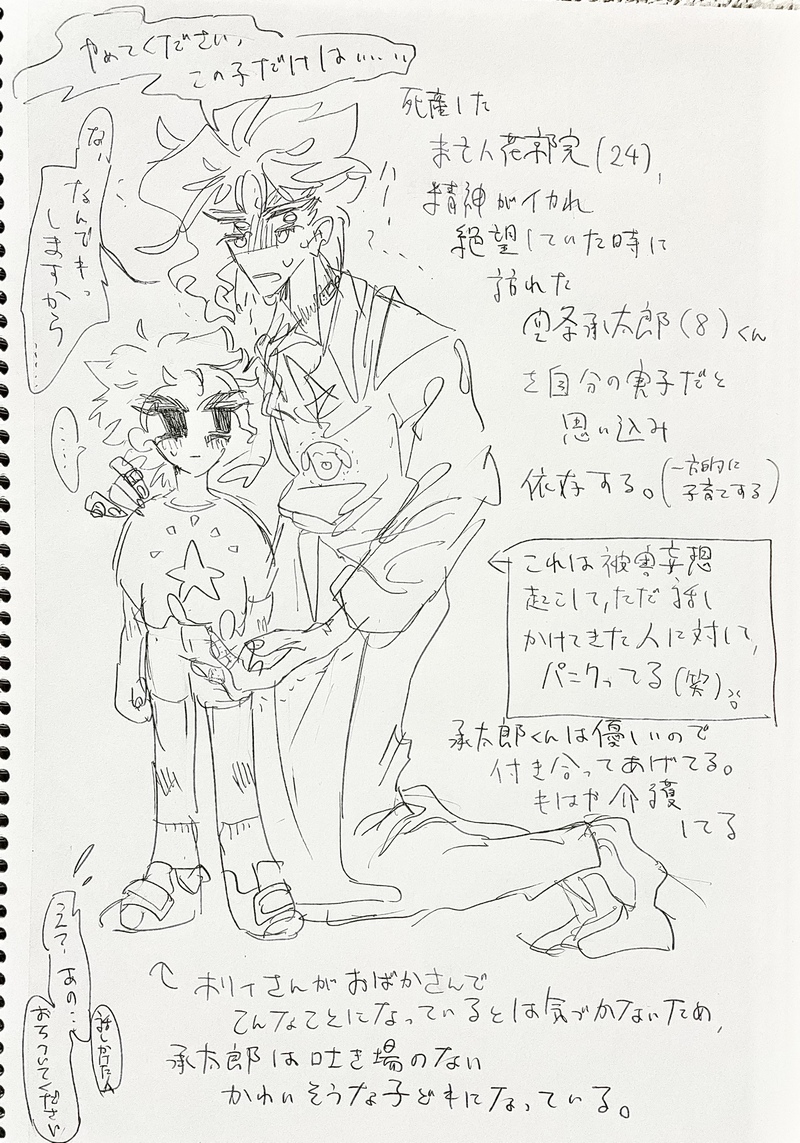 やめてください、
この子だけは……
な、
なんでもっ
しますから
……
死産した
まそ人花郭院(24)、
精神がイカれ
絶望していた時に
訪れた
空条承太郎(8)くん
を自分の実子だと
思い込み
依存する。(一方的に
子育てする)
……
←これは被害妄想
起こして、ただ話し
かけてきた人に対して、
パニクってる(笑)
承太郎くんは優しいので
付き合ってあげてる。
もはや介護
してる
ホリィさんがおばかさんで
こんなことになっているとは気づかないため、
承太郎は吐き場のない
かわいそうな子どもになっている。
えっ、あの…
おちついてください
話しかけた人